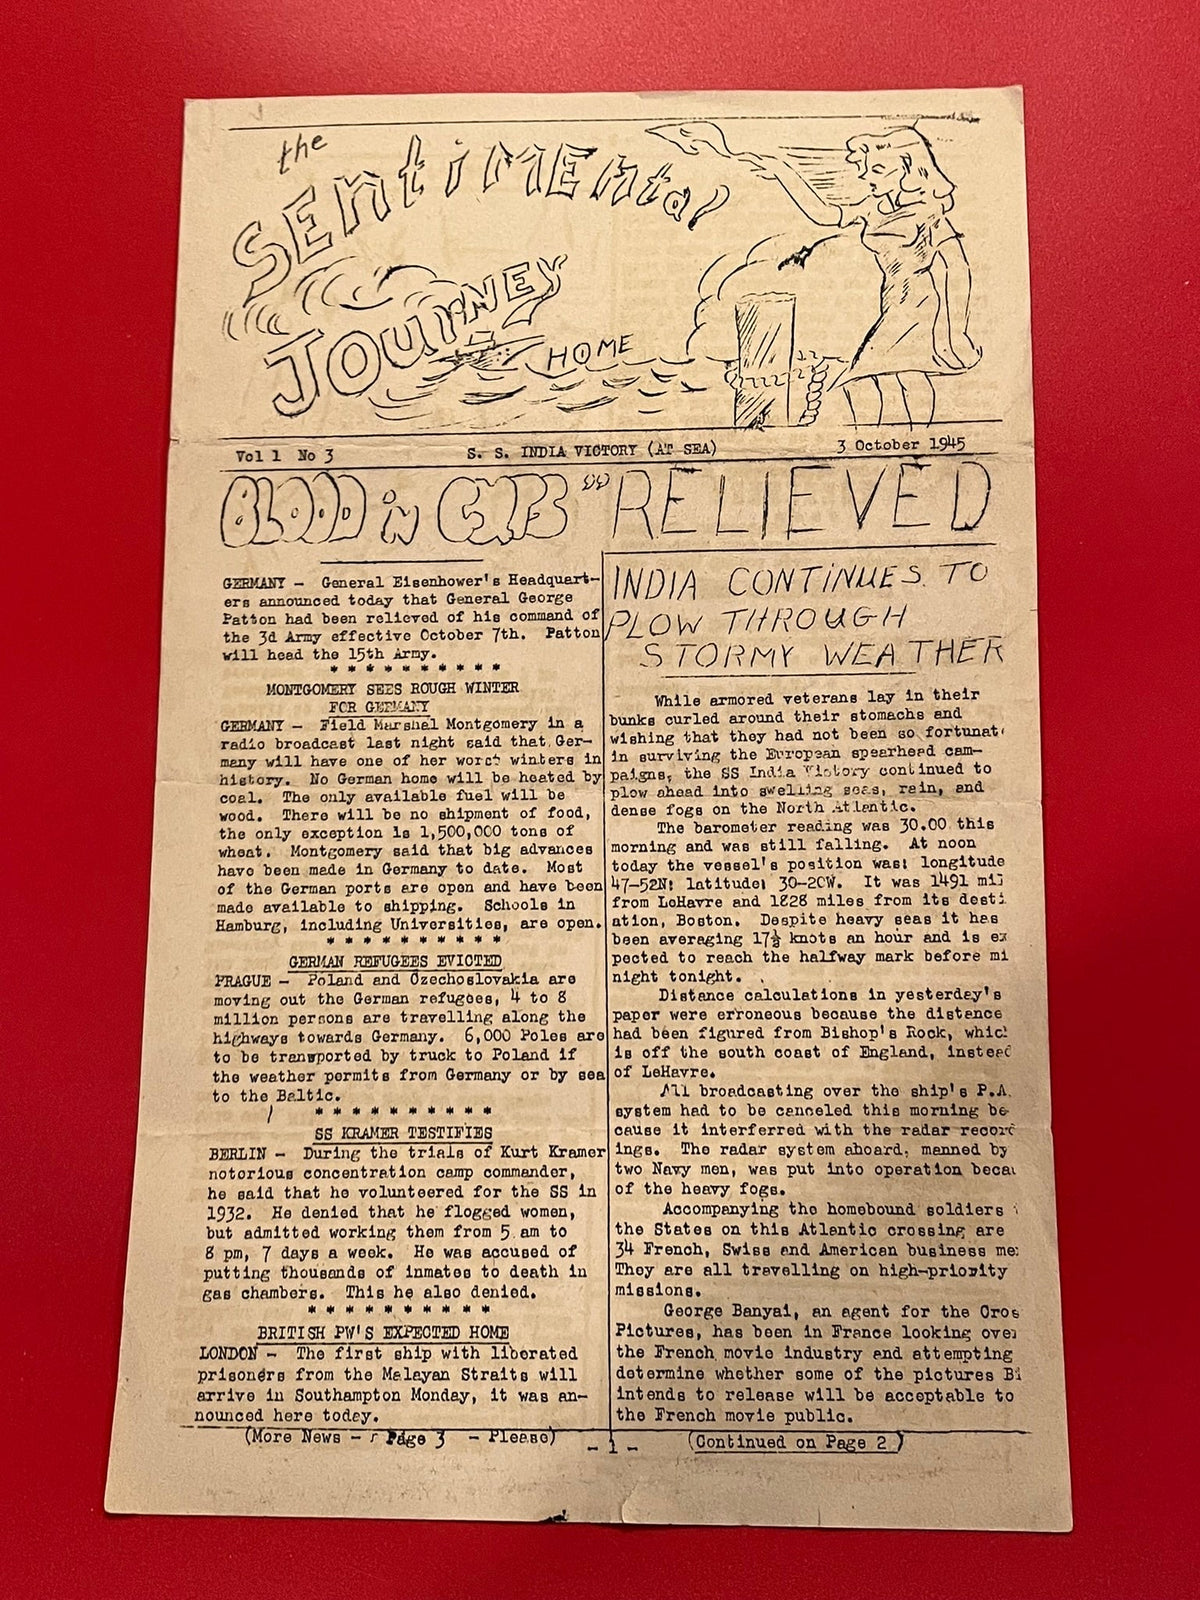 the
SENtiMENtal
JOURNEY
HOME
Vol 1 No 3 S. S. INDIA VICTORY (AT SEA) 3 October 1945
BLOOD iN GUTS "" RELIEVED
GERMANY - General Eisenhower's Headquart-
ers announced today that General George
Patton had been relieved of his command of
the 3d Army effective October 7th. Patton
will head the 15th Army.
* * * * * * * * * *
MONTGOMERY SEES ROUGH WINTER
FOR GERMANY
GERMANY - Field Marshal Montgomery in a
radio broadcast last night said that Ger-
many will have one of her worst winters in
history. No German home will be heated by
coal. The only available fuel will be
wood. There will be no shipment of food,
the only exception is 1,500,000 tons of
wheat. Montgomery said that big advances
have been made in Germany to date. Most
of the German ports are open and have been
made available to shipping. Schools in
Hamburg, including Universities, are open.
* * * * * * * * * *
GERMAN REFUGEES EVICTED
PRAGUE - Poland and Czechoslovakia are
moving out the German refugees, 4 to 8
million persons are travelling along the
highways towards Germany. 6,000 Poles are
to be transported by truck to Poland if
the weather permits from Germany or by sea
to the Baltic.
* * * * * * * * * *
SS KRAMER TESTIFIES
BERLIN - During the trials of Kurt Kramer
notorious concentration camp commander,
he said that he volunteered for the SS in
1932. He denied that he flogged women,
but admitted working them from 5 am to
8 pm, 7 days a week. He was accused of
putting thousands of inmates to death in
gas chambers. This he also denied.
* * * * * * * * * *
BRITISH PW'S EXPECTED HOME
LONDON - The first ship with liberated
prisoners from the Malayan Straits will
arrive in Southampton Monday, it was an-
nounced here today.
(More News - Page 3 - Please)
INDIA CONTiNUES TO
PLOW THROUGH
STORMY WEATHER
While armored veterans lay in their
bunks curled around their stomachs and
wishing that they had not been so fortunat
in surviving the European spearhead cam-
paigns, the SS India Victory continued to
plow ahead into swelling seas, rain, and
dense fogs on the North Atlantic.
The barometer reading was 30.00 this
morning and was still falling. At noon
today the vessel's position was: longitude
47-52N: latitude: 30-20W. It was 1491 mil
from LeHavre and 1828 miles from its desti
ation, Boston. Despite heavy seas it has
been averaging 17½ knots an hour and is ex
pected to reach the halfway mark before mi
night tonight.
Distance calculations in yesterday's
paper were erroneous because the distance
had been figured from Bishop's Rock, whic
is off the south coast of England, instead
of LeHavre.
All broadcasting over the ship's P.A.
system had to be canceled this morning be
cause it interferred with the radar record
ings. The radar system aboard, manned by
two Navy men, was put into operation becau
of the heavy fogs.
Accompanying the homebound soldiers
the States on this Atlantic crossing are
34 French, Swiss and American business me
They are all travelling on high-priority
missions.
George Banyai, an agent for the Cros
Pictures, has been in France looking over
the French movie industry and attempting
determine whether some of the pictures Bi
intends to release will be acceptable to
the French movie public.
(Continued on Page 2)
- 1 -